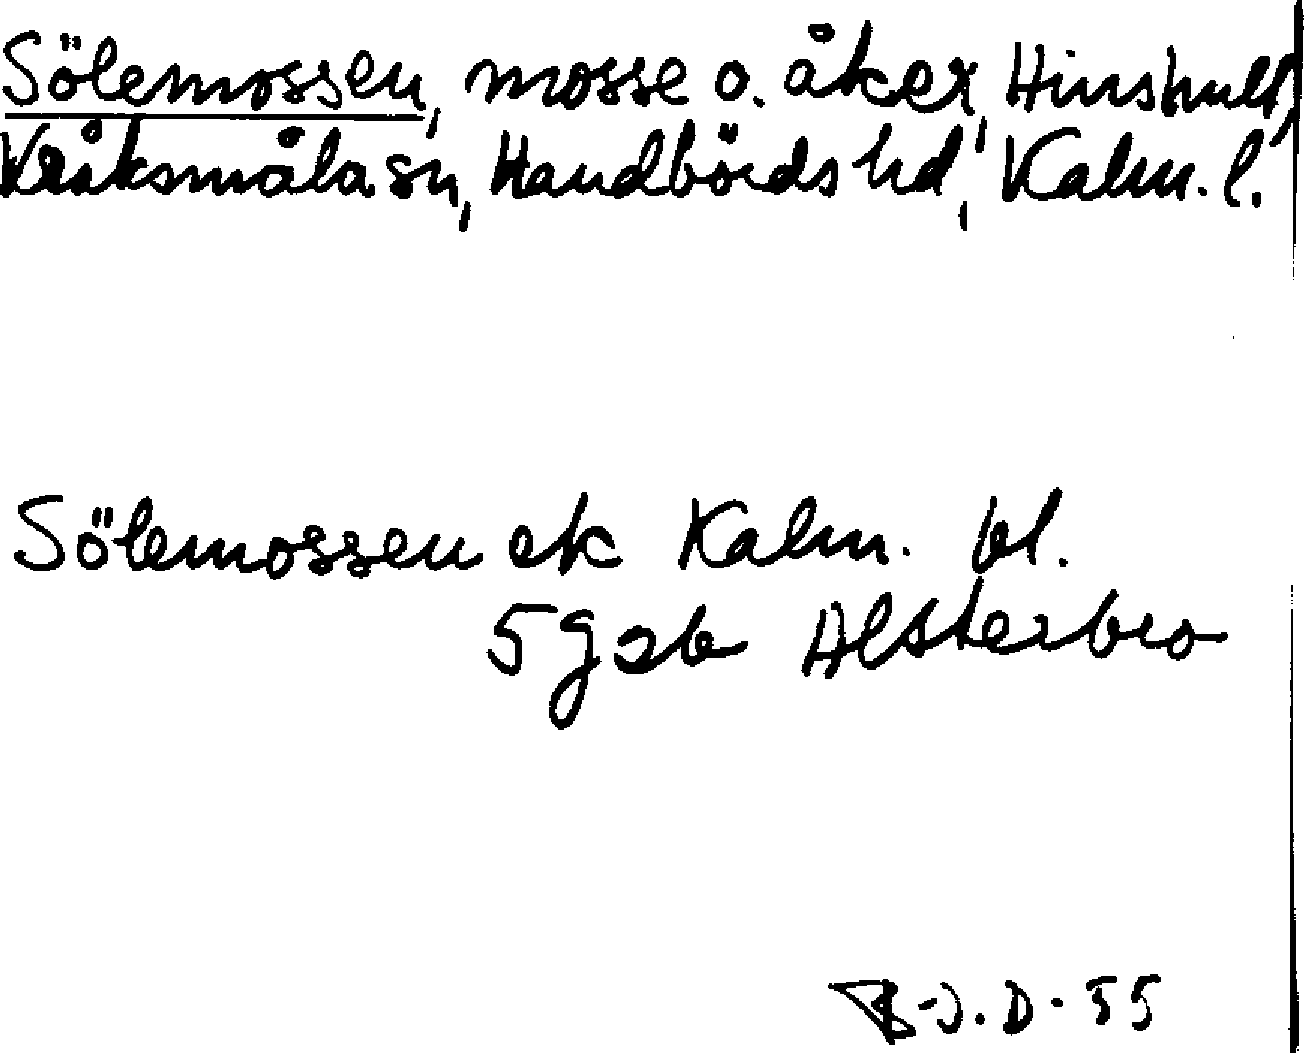 Sölemossen, mosse o. åker, Hinshult,
Kråksmåla sn, Handbörds hd, Kalm. l.
Sölemossen ek Kalm. bl.
5 g 2b Alsterbro
B-J.D-55